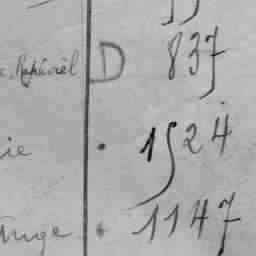 Raphaël D 837
ie • 1524
ange • 1147